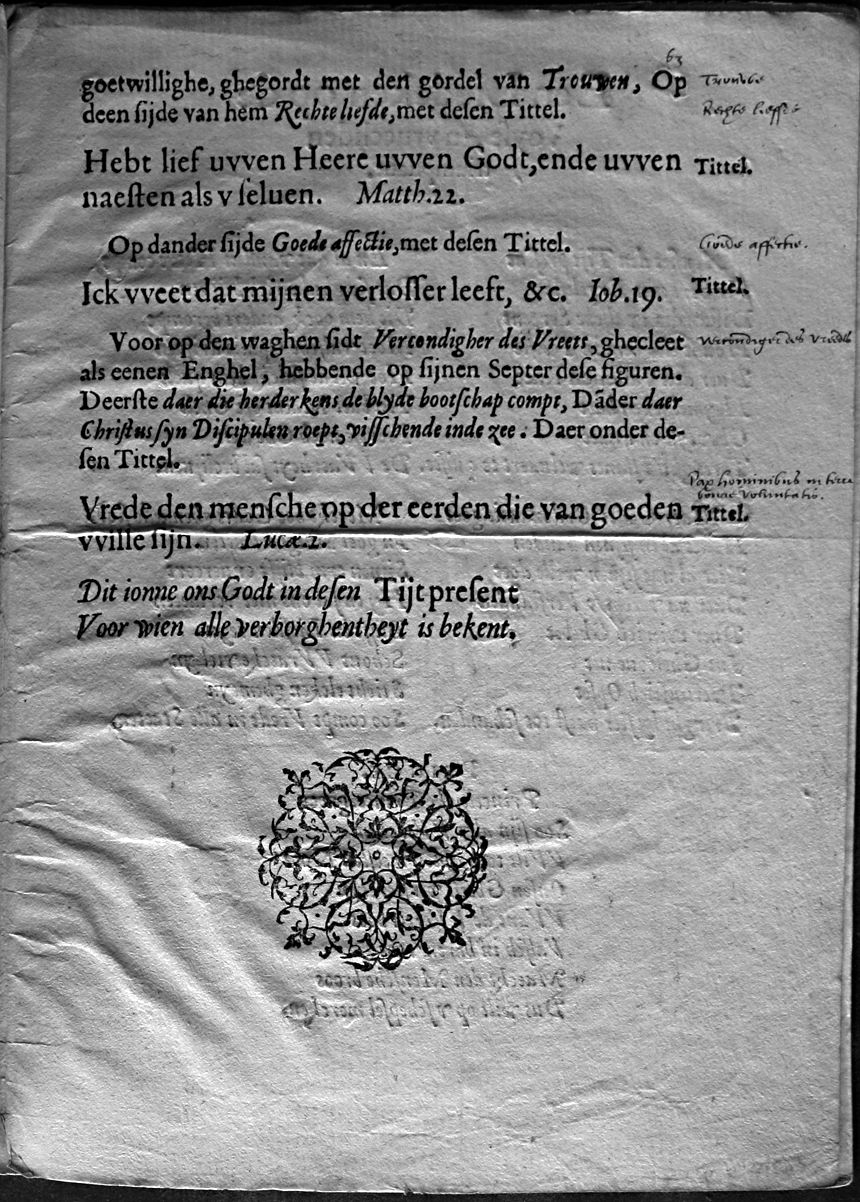 63
goetwillighe, ghegordt met den gordel van Trouwen, Op
deen sijde van hem Rechte liefde, met desen Tittel.
Hebt lief uvven Heere uvven Godt, ende uvven Tittel.
naesten als v seluen. Matth. 22.
Op dander sijde Goede affectie, met desen Tittel. Goede affectie.
Ick vveet dat mijnen verlosser leeft, &c. Iob. 19. Tittel.
Voor op den waghen sidt Vercondigher des Vreets, ghecleet
als eenen Enghel, hebbende op sijnen Septer dese figuren.
Deerste daer die herderkens de blyde bootschap compt, Dāder daer
Christus syn Discipulen roept, visschende inde zee. Daer onder de-
sen Tittel.
Pax hominibus in terra
bonae voluntatis.
Vrede den mensche op der eerden die van goeden Tittel.
vville sijn. Lucæ. 2.
Dit ionne ons Godt in desen Tijt present
Voor wien alle verborghentheyt is bekent.